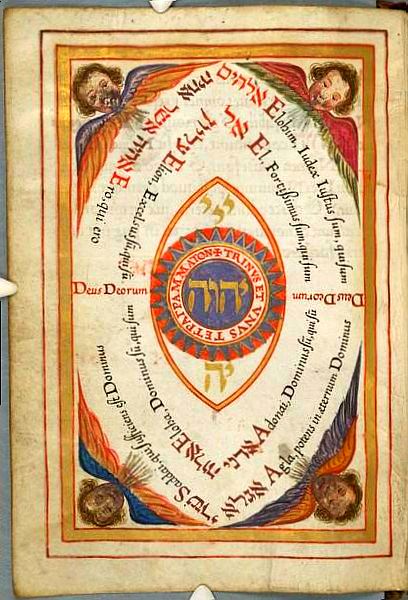 אהיה אשר אהיה Ero, qui ero
אלהים Elohim, Iudex Iustus sum, qui sum
עליון Elion, Excelsus sū, qui sū
אל El, Fortissimus sum, qui sum
ייי
✝ TRINVS ET VNVS TETPAΓPAMMATON
יהוה
Deus Deorum
Deus Deorum
יה
Eloha, Dominus sū, qui sum
Adonai, Dominus sū, qui sū
שדי Saddai, qui sufficiens est Dominus
Agla, potens in eternum Dominus